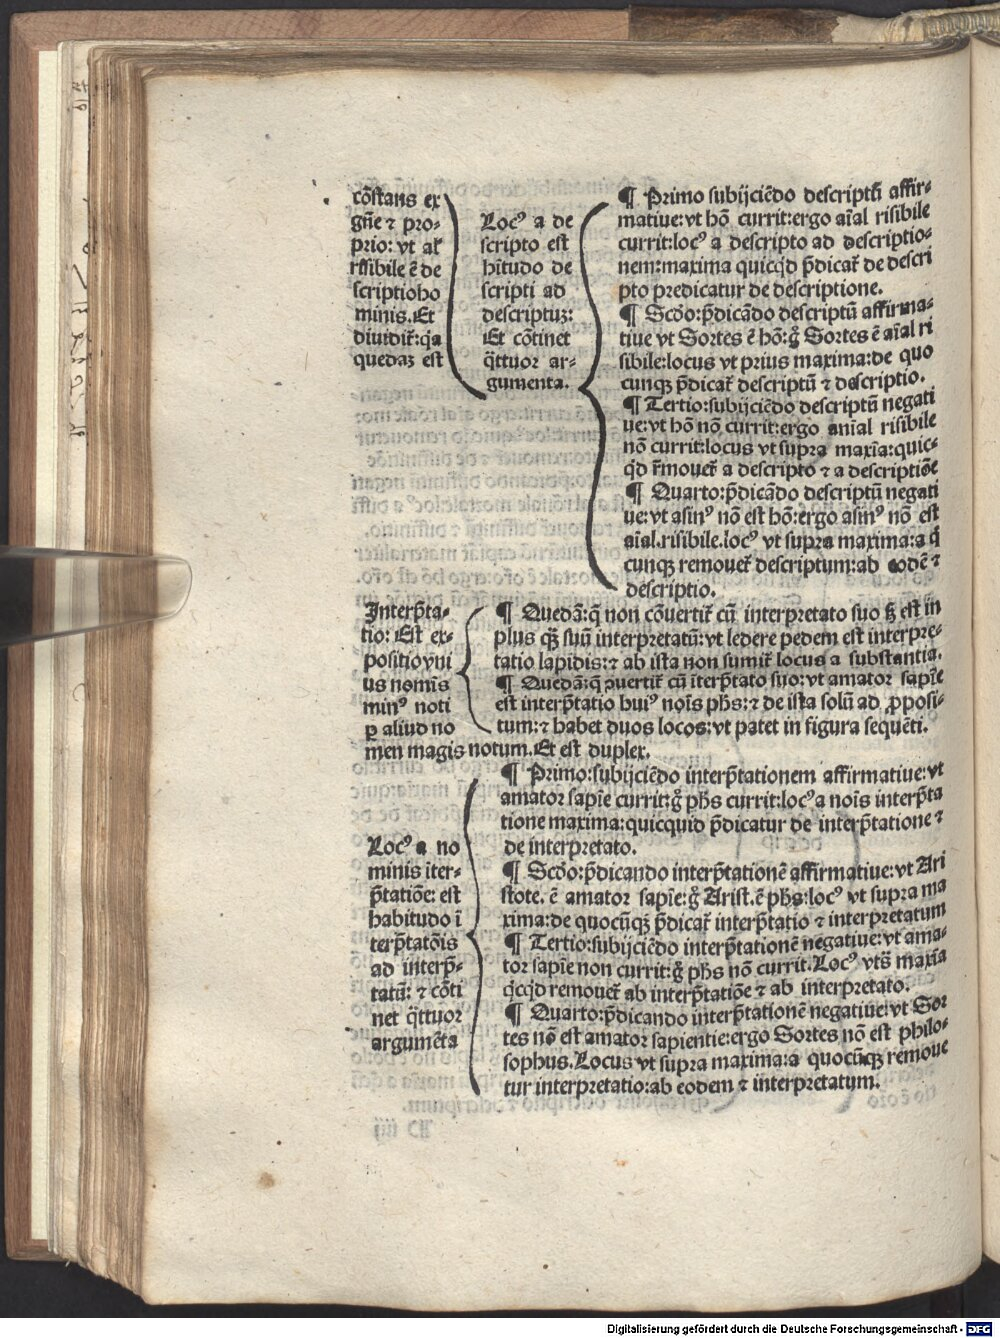 cōſtans ex
gñe ⁊ pro-
prio: vt aīal
riſibile ē de
ſcriptio ho
minis. Et
diuidit̃: q̃a
quedaꝫ eſt
Locꝰ a de
ſcripto eſt
hītudo de
ſcripti ad
deſcriptuꝫ:
Et cōtinet
q̃ttuor ar-
gumenta.
¶ Primo ſubijciēdo deſcriptũ affir-
matiue: vt hō currit: ergo aīal riſibile
currit: locꝰ a deſcripto ad deſcriptio-
nem: maxima quicqd p̄dicat̃ de deſcri
pto predicatur de deſcriptione.
¶ Scd̄o: p̄dicādo deſcriptū affirma-
tiue vt Sortes ē hō: g̊ Sortes ē aīal ri
ſibile: locus vt prius maxima: de quo
cunqꝫ p̄dicat̃ deſcriptũ ⁊ deſcriptio.
¶ Tertio: ſubijciēdo deſcriptū negati
ue: vt hō nō currit: ergo anīal riſibile
nō currit: locus vt ſupra maxīa: quic-
qd r̄mouet̃ a deſcripto ⁊ a deſcriptiōe
¶ Quarto: p̄dicādo deſcriptũ negati
ue: vt aſinꝰ nō eſt hō: ergo aſinꝰ nō eſt
aīal riſibile. locꝰ vt ſupra maxima: a q̊
cunqꝫ remouet̃ deſcriptum: ab eodē ⁊
deſcriptio.
Interp̄ta-
tio: Eſt ex-
poſitio vni
us nomīs
minꝰ noti
ꝑ aliud no
men magis notum. Et eſt duplex.
¶ Quedā: q̄ non cōuertit̃ cũ interpretato ſuo ſꝫ eſt in
plus qꝫ ſuū interpretatū: vt ledere pedem eſt interpre-
tatio lapidis: ⁊ ab iſta non ſumit̃ locus a ſubſtantia.
¶ Quedā: q̄ ↄuertit̃ cũ īterp̄tato ſuo: vt amator ſapīe
eſt interp̄tatio huiꝰ noīs ph̄s: ⁊ de iſta ſolũ ad ꝓpoſi-
tum: ⁊ habet duos locos: vt patet in figura ſequēti.
Locꝰ a no
minis īter-
p̄tatiōe: eſt
habitudo ī
terp̄tatōis
ad interp̄-
tatũ: ⁊ cōti
net q̃ttuor
argumēta
¶ Primo: ſubijciēdo interp̄tationem affirmatiue: vt
amator ſapīe currit: g̊ ph̄s currit: locꝰ a noīs interp̄ta
tione maxima: quicquid p̄dicatur de interp̄tatione ⁊
de interpretato.
¶ Scd̄o: p̄dicando interp̄tationē affirmatiue: vt Ari
ſtote. ē amator ſapīe: g̊ Ariſt. ē ph̄s: locꝰ vt ſupra ma
xima: de quocūqꝫ p̄dicat̃ interp̄tatio ⁊ interpretatum
¶ Tertio: ſubijciēdo interp̄tationē negatiue: vt ama-
tor ſapīe non currit: g̊ ph̄s nō currit. Locꝰ vt s̄ maxīa
q̇cqd remouet̃ ab interp̄tatiōe ⁊ ab interpretato.
¶ Quarto: p̄dicando interp̄tationē negatiue: vt Sor
tes nō eſt amator ſapientie: ergo Sortes nō eſt philo-
ſophus. Locus vt ſupra maxima: a quocūqꝫ remoue
tur interpretatio: ab eodem ⁊ interpretatum.
Digitalisierung gefördert durch die Deutsche Forschungsgemeinschaft - DFG